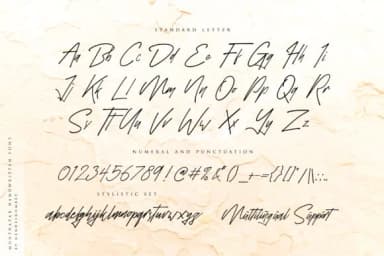 STANDARD LETTER
Aa Bb Cc Dd Ee Ff Gg Hh Ii
Jj Kk Ll Mm Nn Oo Pp Qq Rr
Ss Tt Uu Vv Ww Xx Yy Zz
NUMERAL AND PUNCTUATION
0123456789!@#%&()_-+={}[]|\:;.
STYLISTIC SET
abcdefghijklmnopqrstuvwxyz Multilingual Support
HANDWRITTEN FONT